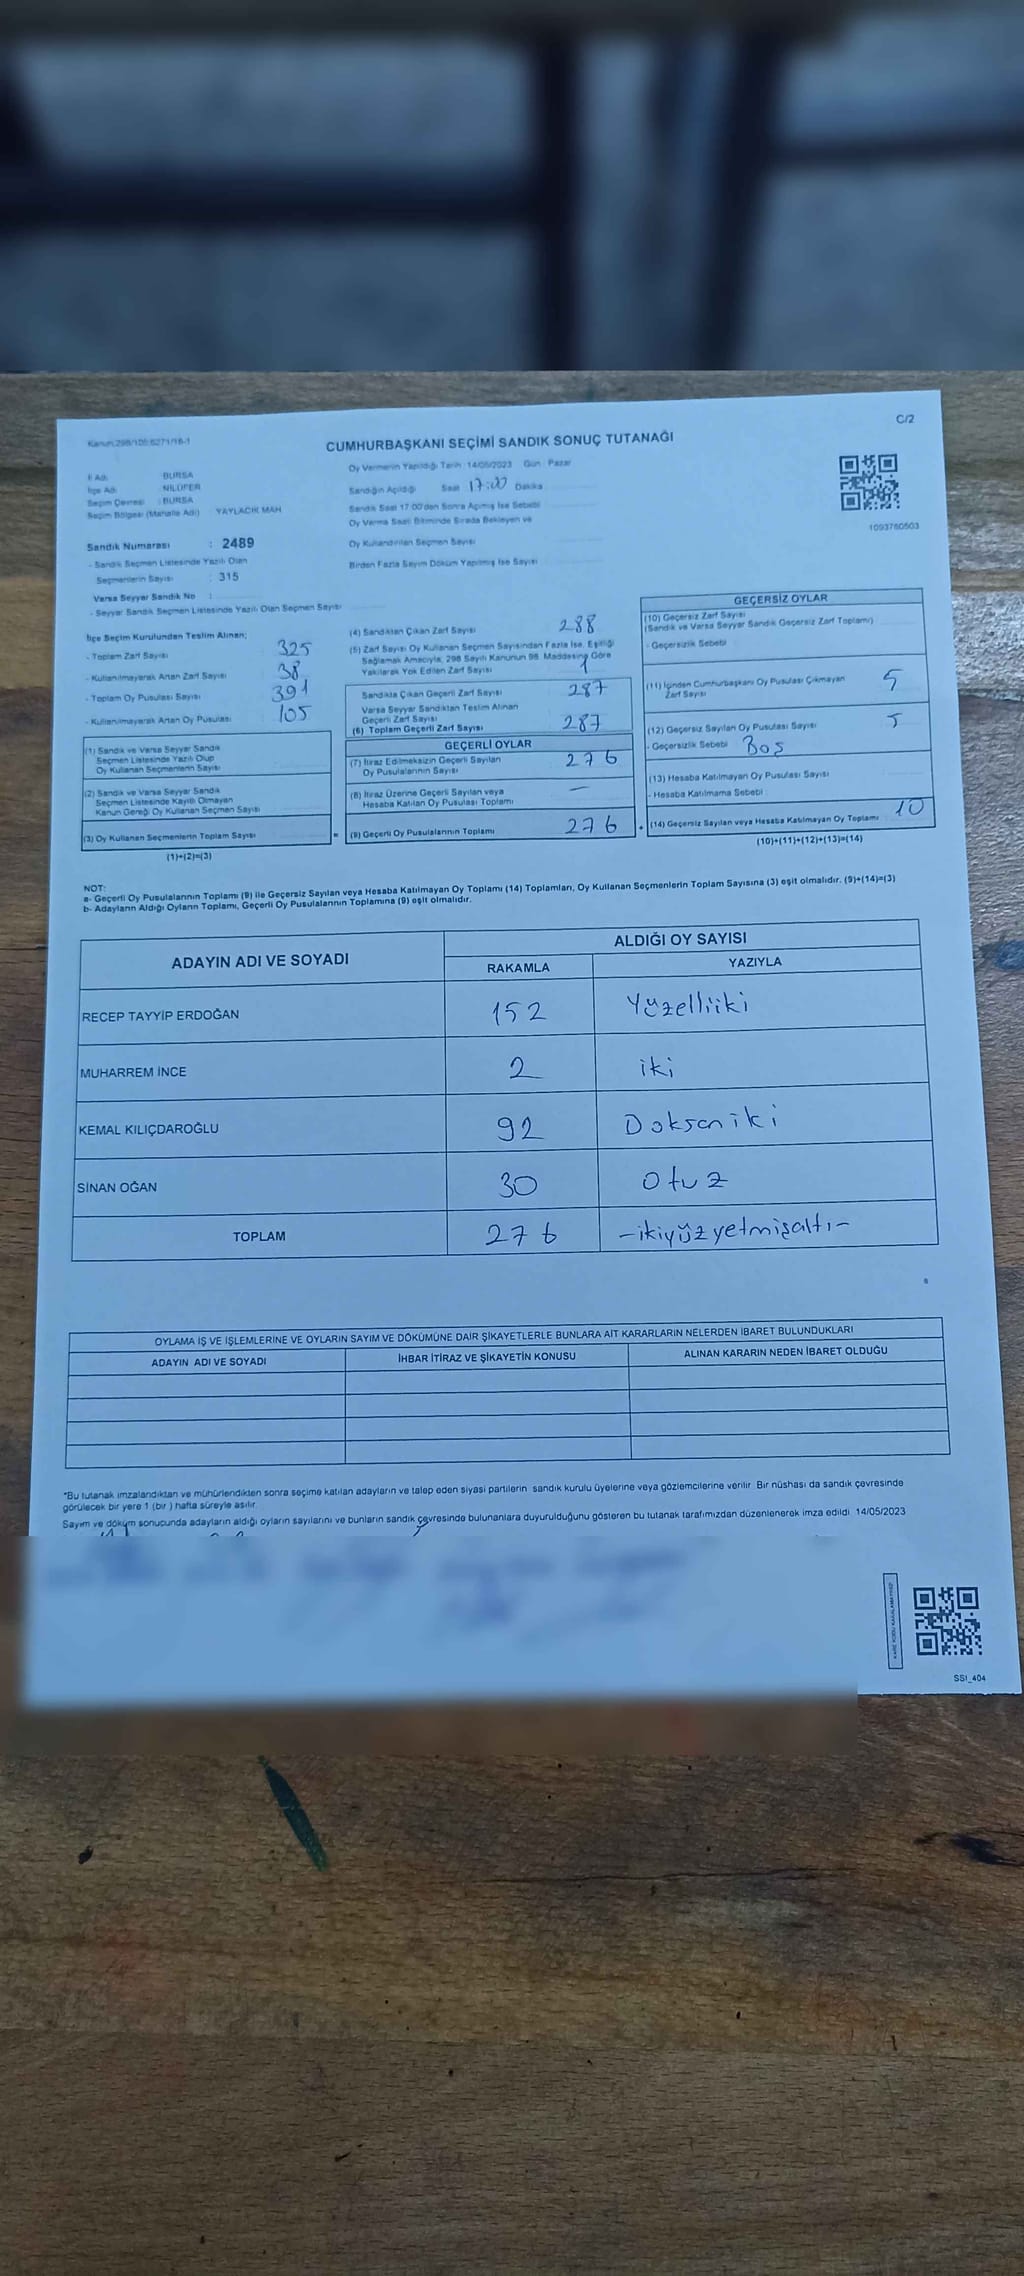 Kanun:298/105;6271/16-1
C/2
CUMHURBAŞKANI SEÇİMİ SANDIK SONUÇ TUTANAĞI
İl Adı : BURSA
İlçe Adı : NİLÜFER
Seçim Çevresi : BURSA
Seçim Bölgesi (Mahalle Adı) YAYLACIK MAH
Sandık Numarası : 2489
- Sandık Seçmen Listesinde Yazılı Olan
Seçmenlerin Sayısı : 315
Varsa Seyyar Sandık No :
- Seyyar Sandık Seçmen Listesinde Yazılı Olan Seçmen Sayısı
Oy Vermenin Yapıldığı Tarih : 14/05/2023 Gün : Pazar
Sandığın Açıldığı Saat 17:00 Dakika
Sandık Saat 17:00'den Sonra Açılmış İse Sebebi
Oy Verme Saati Bitiminde Sırada Bekleyen ve
Oy Kullandırılan Seçmen Sayısı
Birden Fazla Sayım Döküm Yapılmış İse Sayısı
1093760503
İlçe Seçim Kurulundan Teslim Alınan;
- Toplam Zarf Sayısı : 325
- Kullanılmayarak Artan Zarf Sayısı : 38
- Toplam Oy Pusulası Sayısı : 391
- Kullanılmayarak Artan Oy Pusulası : 105
(1) Sandık ve Varsa Seyyar Sandık
Seçmen Listesinde Yazılı Olup
Oy Kullanan Seçmenlerin Sayısı
(2) Sandık ve Varsa Seyyar Sandık
Seçmen Listesinde Kayıtlı Olmayan
Kanun Gereği Oy Kullanan Seçmen Sayısı
(3) Oy Kullanan Seçmenlerin Toplam Sayısı =
(1)+(2)=(3)
(4) Sandıktan Çıkan Zarf Sayısı 288
(5) Zarf Sayısı Oy Kullanan Seçmen Sayısından Fazla İse, Eşitliği
Sağlamak Amacıyla, 298 Sayılı Kanunun 98. Maddesine Göre
Yakılarak Yok Edilen Zarf Sayısı 1
Sandıkta Çıkan Geçerli Zarf Sayısı 287
Varsa Seyyar Sandıktan Teslim Alınan
Geçerli Zarf Sayısı
(6) Toplam Geçerli Zarf Sayısı 287
GEÇERLİ OYLAR
(7) İtiraz Edilmeksizin Geçerli Sayılan
Oy Pusulalarının Sayısı 276
(8) İtiraz Üzerine Geçerli Sayılan veya
Hesaba Katılan Oy Pusulası Toplamı —
(9) Geçerli Oy Pusulalarının Toplamı 276 +
GEÇERSİZ OYLAR
(10) Geçersiz Zarf Sayısı
(Sandık ve Varsa Seyyar Sandık Geçersiz Zarf Toplamı)
- Geçersizlik Sebebi
(11) İçinden Cumhurbaşkanı Oy Pusulası Çıkmayan
Zarf Sayısı 5
(12) Geçersiz Sayılan Oy Pusulası Sayısı 5
- Geçersizlik Sebebi Boş
(13) Hesaba Katılmayan Oy Pusulası Sayısı
- Hesaba Katılmama Sebebi
(14) Geçersiz Sayılan veya Hesaba Katılmayan Oy Toplamı 10
(10)+(11)+(12)+(13)=(14)
NOT:
a- Geçerli Oy Pusulalarının Toplamı (9) ile Geçersiz Sayılan veya Hesaba Katılmayan Oy Toplamı (14) Toplamları, Oy Kullanan Seçmenlerin Toplam Sayısına (3) eşit olmalıdır. (9)+(14)=(3)
b- Adayların Aldığı Oyların Toplamı, Geçerli Oy Pusulalarının Toplamına (9) eşit olmalıdır.
ADAYIN ADI VE SOYADI
ALDIĞI OY SAYISI
RAKAMLA YAZIYLA
RECEP TAYYİP ERDOĞAN 152 Yüzelliiki
MUHARREM İNCE 2 iki
KEMAL KILIÇDAROĞLU 92 Doksaniki
SİNAN OĞAN 30 Otuz
TOPLAM 276 -ikiyüzyetmişaltı-
OYLAMA İŞ VE İŞLEMLERİNE VE OYLARIN SAYIM VE DÖKÜMÜNE DAİR ŞİKAYETLERLE BUNLARA AİT KARARLARIN NELERDEN İBARET BULUNDUKLARI
ADAYIN ADI VE SOYADI İHBAR İTİRAZ VE ŞİKAYETİN KONUSU ALINAN KARARIN NEDEN İBARET OLDUĞU
*Bu tutanak imzalandıktan ve mühürlendikten sonra seçime katılan adayların ve talep eden siyasi partilerin sandık kurulu üyelerine veya gözlemcilerine verilir. Bir nüshası da sandık çevresinde
görülecek bir yere 1 (bir ) hafta süreyle asılır.
Sayım ve döküm sonucunda adayların aldığı oyların sayılarını ve bunların sandık çevresinde bulunanlara duyurulduğunu gösteren bu tutanak tarafımızdan düzenlenerek imza edildi. 14/05/2023
KARE KODU KARALAMAYINIZ!
SSI_404